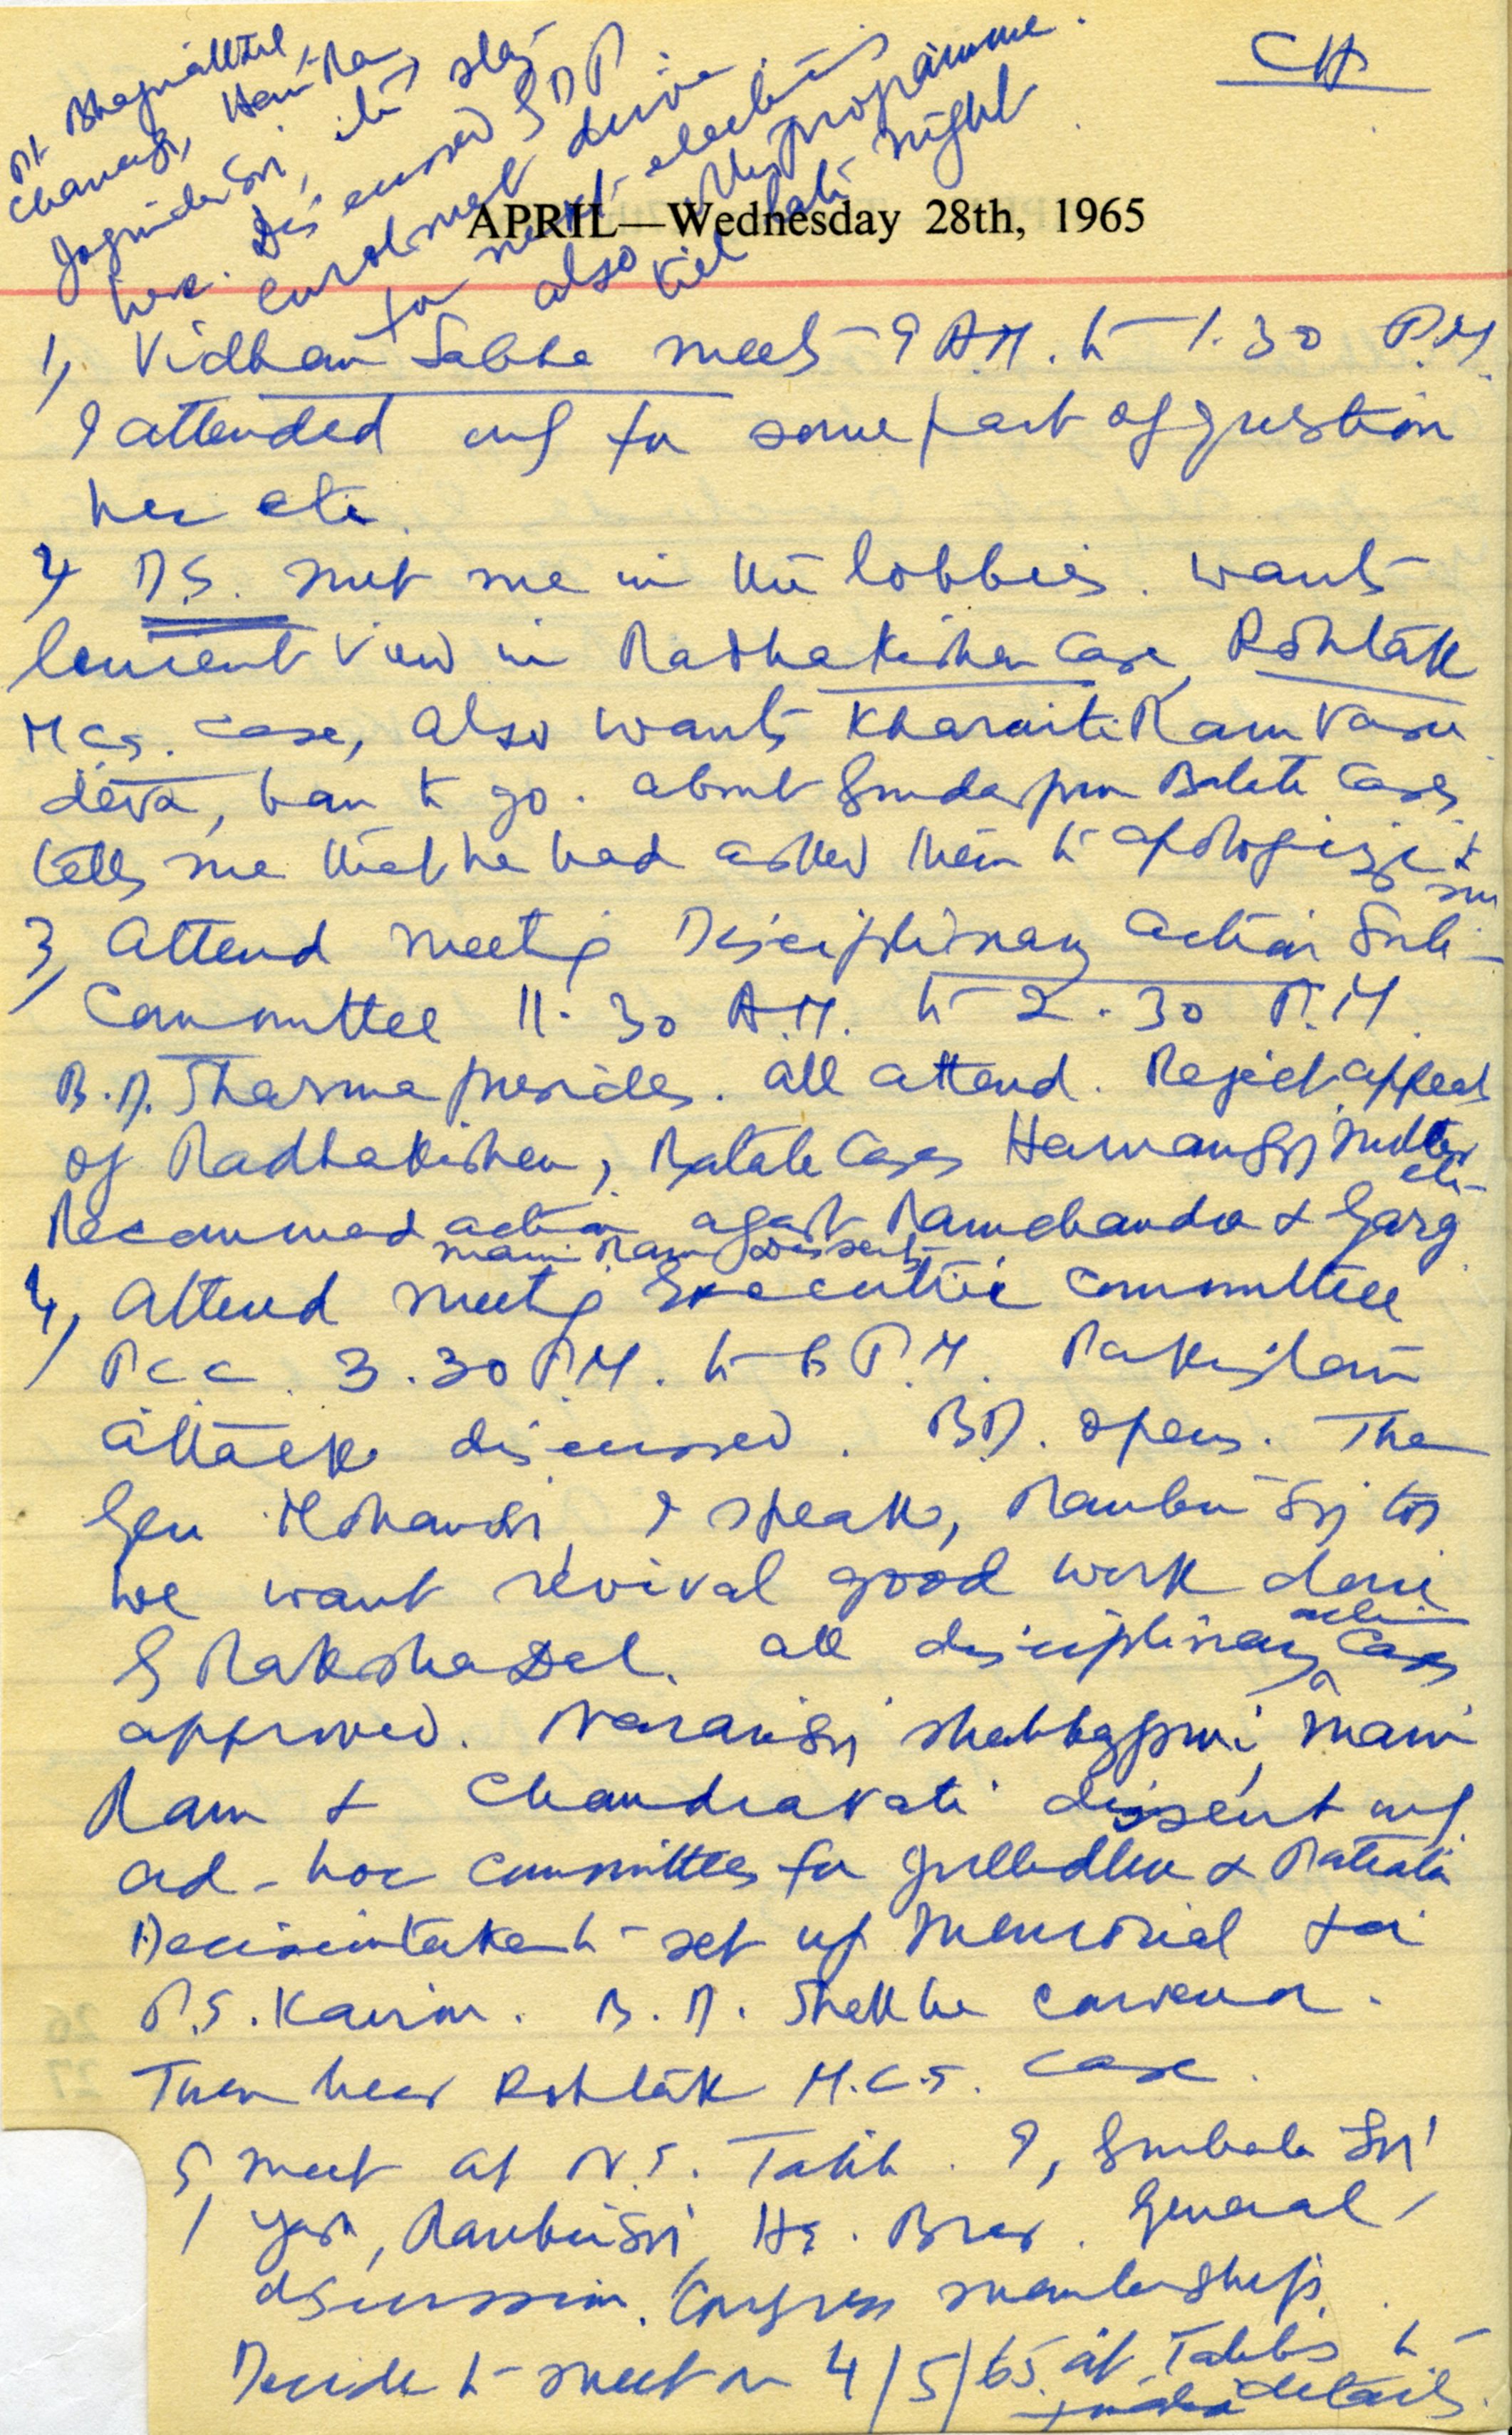 CH
Pt Bhagwat
, Hari Ram,
Joginder Sri,
here. Discussed
enrolment drive
for next elections
also programme.
till late night
APRIL—Wednesday 28th, 1965
1, Vidhan Sabha meets 9 A.M. to 1.30 P.M.
I attended only for some part of question
hour etc.
2, met me in the lobbies. wants
lenient view in Radhakishen case, Rohtak
M.Cs. case, also wants Kharaiti Ram Vasu
deva, ban to go. about Batala Cases
tells me that he had asked them to apologize &
3, Attend meeting Disciplinary action Sub-
Committee 11.30 A.M. to 2.30 P.M.
B.D. Sharma presides. all attend. Reject appeals
of Radhakishen, Batala Cases Harwansri
etc.
Recommend action against Ramchandra & Garg
Mani Ram dissents
4, Attend meeting Executive Committee
P.C.C. 3.30 P.M. to 6 P.M. Pakistani
attack discussed. B.D. opens. Then
Gen Mohansri, I speak, Ranbir Sri too
we want revival good work done
by Raksha Dal. all disciplinary action
approved. Naraisri Shahbazpuri, Mani
Ram & Chandravati dissent only
ad-hoc committees for & Patiala
Decision taken to set up Memorial for
P.S. Kairon. B.D. shall be convenor.
Then hear Rohtak M.C.s. case.
5, meet at N.S. Talib. I, Sri
Yash, Ranbir Sri, HS. Brar. General
discussion. Congress membership.
Decide to meet on 4/5/65 at Talib's to
details.